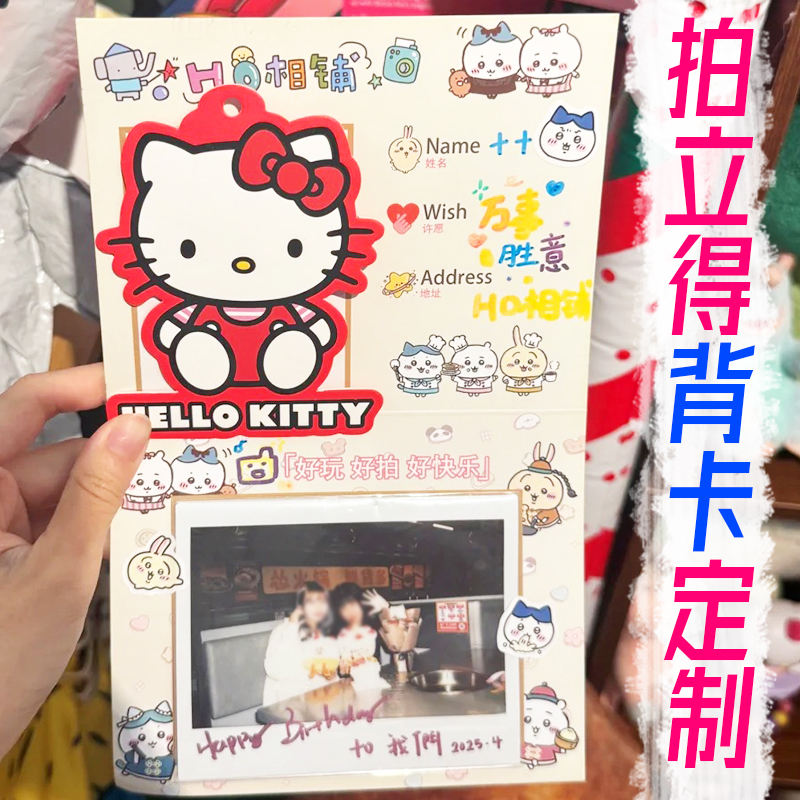 HO相铺
Name ++
姓名
Wish 万事
许愿 胜意
Address
地址 HO相铺
HELLO KITTY
「好玩 好拍 好快乐」
Happy Birthday
to 我们 2025.4
拍立得背卡定制